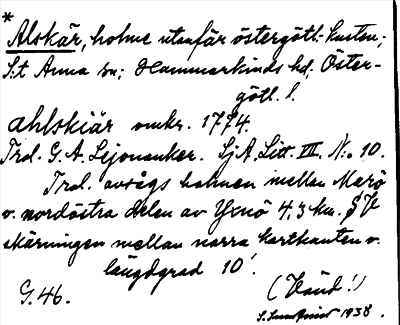 *
Alskär, holme utanför östergötl. kusten;
S:t Anna sn; Hammarkinds hd. Öster-
götl. l.
ahlskiär omkr. 1774.
Trol. G. A. Lejonanker. SjA. Litt. III. N:o 10.
Trol. avsågs holmen mellan Marö
o. nordöstra delen av Yxnö 4,3 km. SV
skärningen mellan norra kartkanten o.
längdgrad 10'.
G. 46. (Vänd!)
1938.